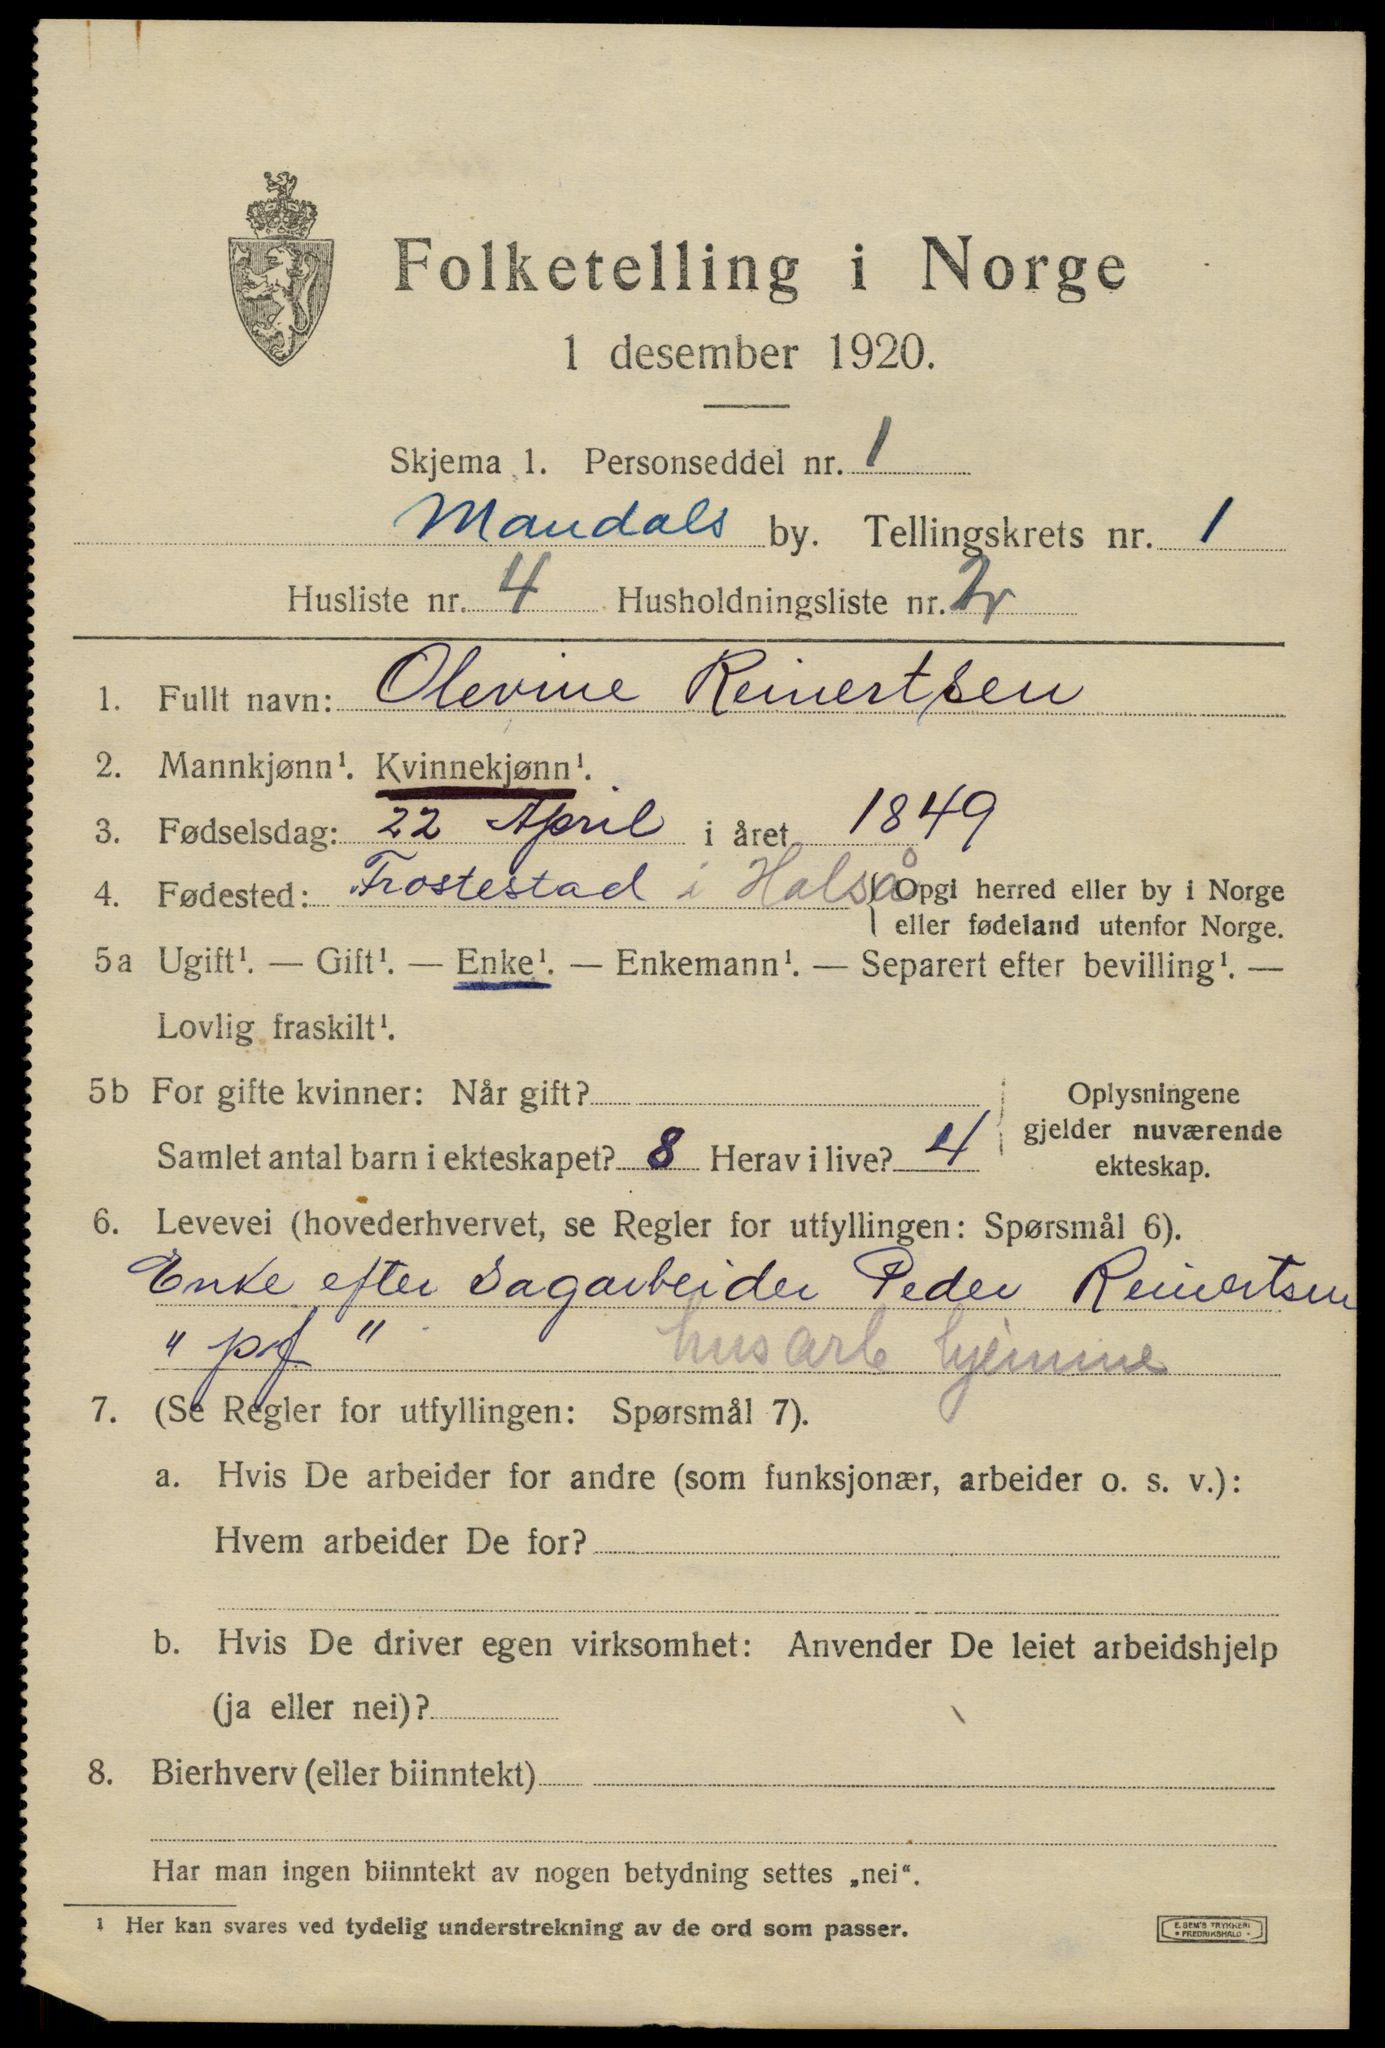 Folketelling i Norge
1 desember 1920.
Skjema 1. Personseddel nr. 1
Mandals by. Tellingskrets nr. 1
Husliste nr. 4 Husholdningsliste nr. 2
1. Fullt navn: Olevine Reinertsen
2. Mannkjønn¹. Kvinnekjønn¹.
3. Fødselsdag: 22 April i året 1849
4. Fødested: Frostestad i Halså (Opgi herred eller by i Norge
eller fødeland utenfor Norge.
5a Ugift¹. — Gift¹. — Enke¹. — Enkemann¹. — Separert efter bevilling¹. —
Lovlig fraskilt¹.
5b For gifte kvinner: Når gift?
Samlet antal barn i ekteskapet? 8 Herav i live? 4
Oplysningene
gjelder nuværende
ekteskap.
6. Levevei (hovederhvervet, se Regler for utfyllingen: Spørsmål 6).
Enke efter Sagarbeider Peder Reinertsen
" pf " husarb hjemme
7. (Se Regler for utfyllingen: Spørsmål 7).
a. Hvis De arbeider for andre (som funksjonær, arbeider o. s. v.):
Hvem arbeider De for?
b. Hvis De driver egen virksomhet: Anvender De leiet arbeidshjelp
(ja eller nei)?
8. Bierhverv (eller biinntekt)
Har man ingen biinntekt av nogen betydning settes „nei“.
¹ Her kan svares ved tydelig understrekning av de ord som passer.
E. SEM'S TRYKKERI
• FREDRIKSHALD •